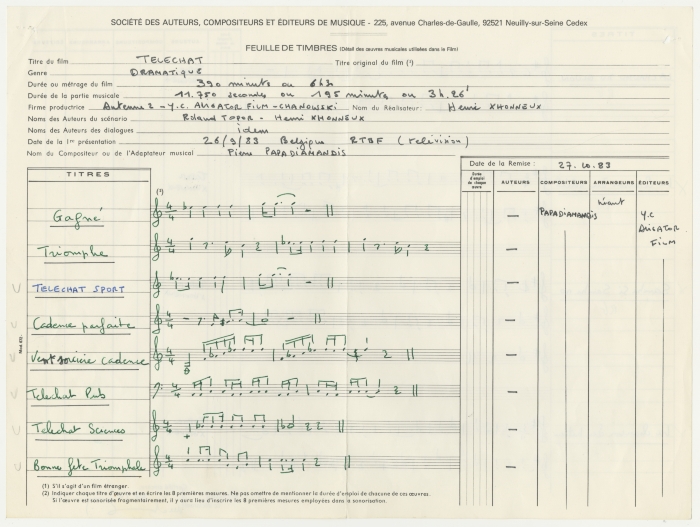 SOCIÉTÉ DES AUTEURS, COMPOSITEURS ET ÉDITEURS DE MUSIQUE - 225, avenue Charles-de-Gaulle, 92521 Neuilly-sur-Seine Cedex
FEUILLE DE TIMBRES (Détail des œuvres musicales utilisées dans le Film)
Titre du film TELECHAT Titre original du film (¹)
Genre DRAMATIQUE
Durée ou métrage du film 390 minutes ou 6h30
Durée de la partie musicale 11.750 secondes ou 195 minutes ou 3h.26'
Firme productrice Antenne 2 - Y.C. ALIGATOR FILM - CHANOWSKI Nom du Réalisateur: Henri XHONNEUX
Noms des Auteurs du scénario Roland TOPOR - Henri XHONNEUX
Noms des Auteurs des dialogues idem
Date de la 1re présentation 26/9/83 Belgique RTBF (télévision)
Nom du Compositeur ou de l'Adaptateur musical Pierre PAPADIAMANDIS
Date de la Remise : 27.10.83
TITRES
(²)
Durée d'emploi de chaque œuvre
AUTEURS
COMPOSITEURS
ARRANGEURS
ÉDITEURS
PAPADIAMANDIS
néant
Y.C
ALIGATOR
FILM
Gagné
Triomphe
TELECHAT SPORT
Cadence parfaite
Vent sorcière Cadence
Telechat Pub
Telechat Sciences
Bonne fête Triomphale
(1) S'il s'agit d'un film étranger.
(2) Indiquer chaque titre d'œuvre et en écrire les 8 premières mesures. Ne pas omettre de mentionner la durée d'emploi de chacune de ces œuvres.
Si l'œuvre est sonorisée fragmentairement, il y aura lieu d'inscrire les 8 premières mesures employées dans la sonorisation.